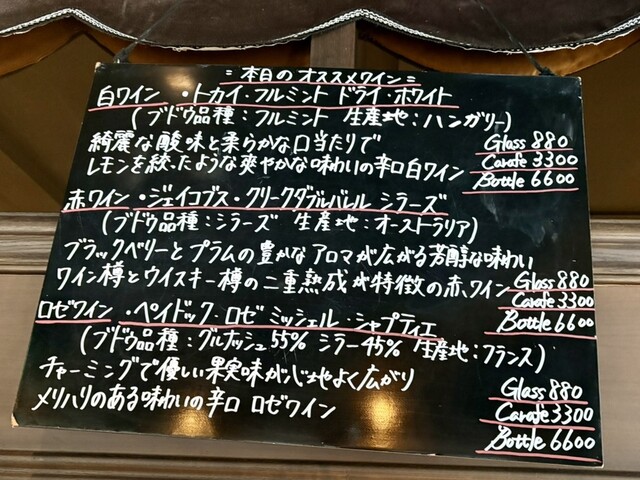 =本日のオススメワイン=
白ワイン ・トカイ・フルミント ドライ・ホワイト
(ブドウ品種:フルミント 生産地:ハンガリー)
綺麗な酸味と柔らかな口当たりで
レモンを絞ったような爽やかな味わいの辛口白ワイン
Glass 880
Carafe 3300
Bottle 6600
赤ワイン ・ジェイコブス・クリークダブルバレル シラーズ
(ブドウ品種:シラーズ 生産地:オーストラリア)
ブラックベリーとプラムの豊かなアロマが広がる芳醇な味わい
ワイン樽とウイスキー樽の二重熟成が特徴の赤ワイン
Glass 880
Carafe 3300
Bottle 6600
ロゼワイン ・ペイドック・ロゼ ミッシェル・シャプティエ
(ブドウ品種:グルナッシュ55% シラー45% 生産地:フランス)
チャーミングで優しい果実味が心地よく広がり
メリハリのある味わいの辛口 ロゼワイン
Glass 880
Carafe 3300
Bottle 6600